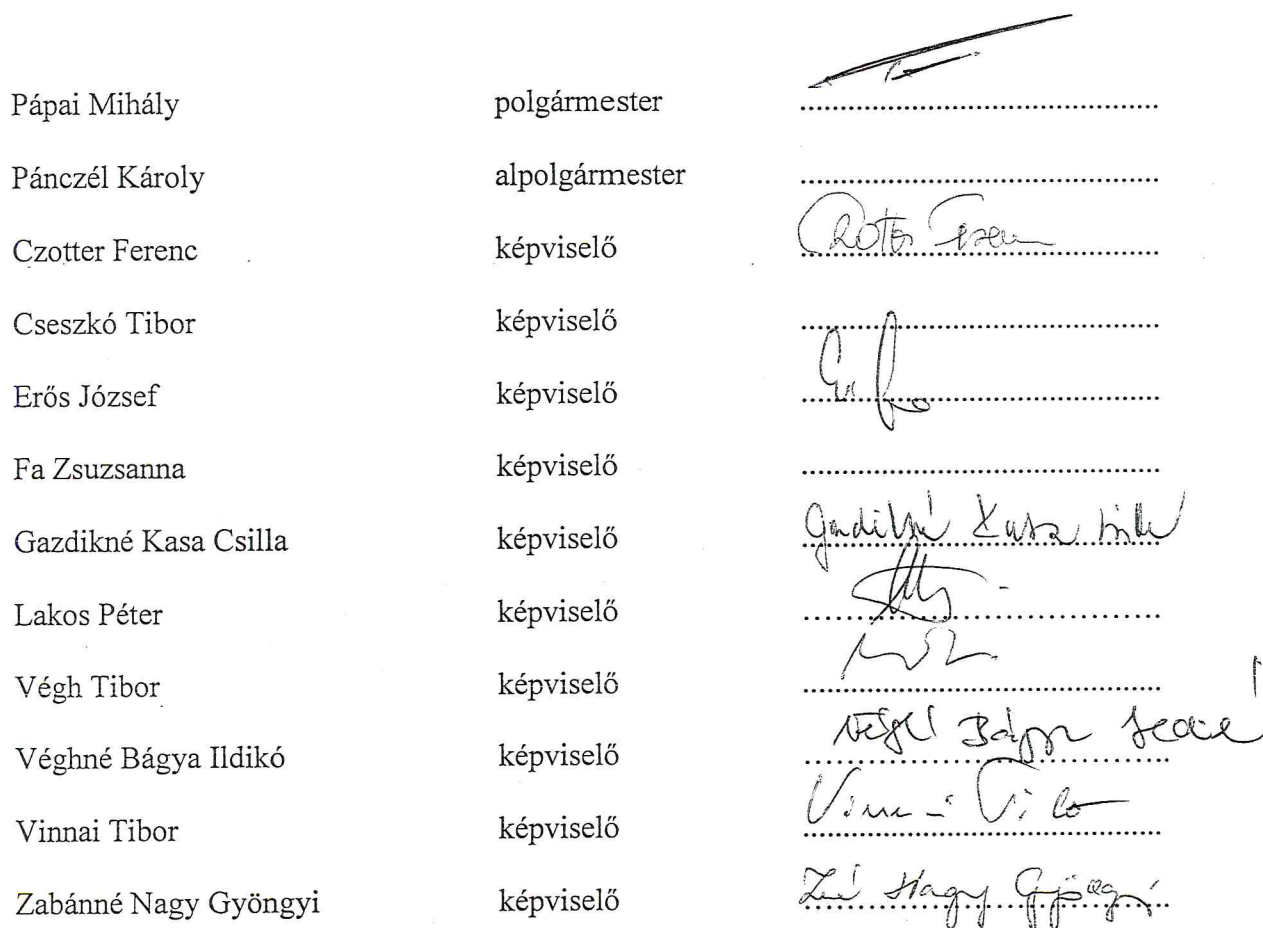 Pápai Mihály polgármester ........................................................
Pánczél Károly alpolgármester ........................................................
Czotter Ferenc képviselő ........................................................
Cseszkó Tibor képviselő ........................................................
Erős József képviselő ........................................................
Fa Zsuzsanna képviselő ........................................................
Gazdikné Kasa Csilla képviselő ........................................................
Lakos Péter képviselő ........................................................
Végh Tibor képviselő ........................................................
Véghné Bágya Ildikó képviselő ........................................................
Vinnai Tibor képviselő ........................................................
Zabánné Nagy Gyöngyi képviselő Nagy Gyöngyi